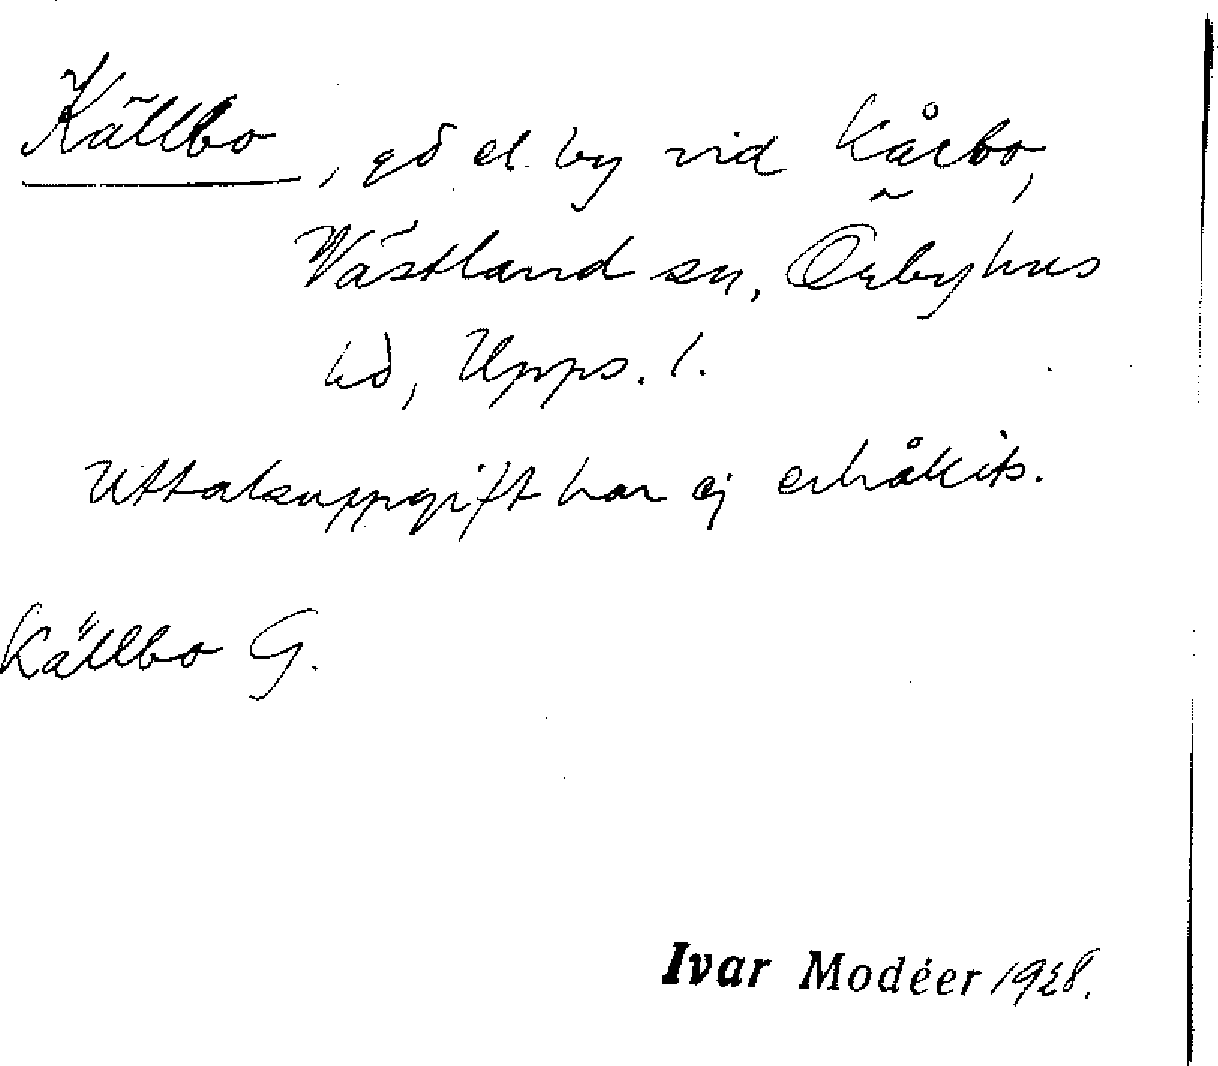 Källbo, gd el. by vid Kårbo,
Västland sn, Örbyhus
hd, Upps. l.
Uttalsuppgift har ej erhållits.
Källbo G.
Ivar Modéer 1928.